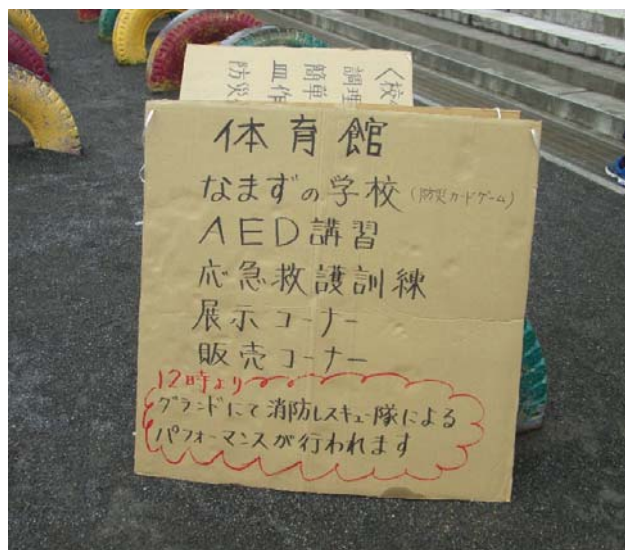 〈校
調理
簡単
皿作
防災
体育館
なまずの学校(防災カードゲーム)
AED講習
応急救護訓練
展示コーナー
販売コーナー
12時より
グランドにて消防レスキュー隊による
パフォーマンスが行われます